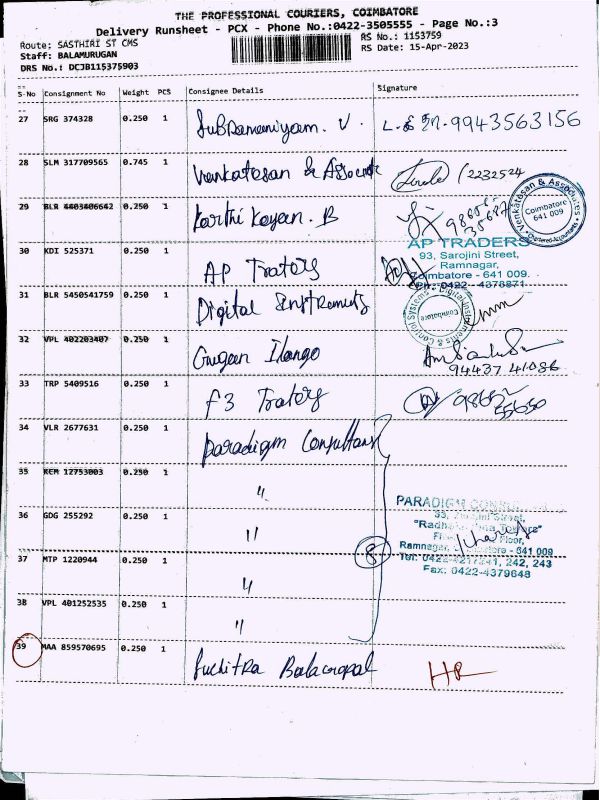 THE PROFESSIONAL COURIERS, COIMBATORE
Delivery Runsheet - PCX - Phone No.:0422-3505555 - Page No.:3
Route: SASTHIRI ST CMS
RS No.: 1153759
Staff: BALAMURUGAN
RS Date: 15-Apr-2023
DRS No.: DCJB115375903
S-No Consignment No Weight PCS Consignee Details Signature
27 SRG 374328 0.250 1 Subramaniyam. V. 9943563156
28 SLM 317709565 0.745 1 Venkatesan & Associate /2232524
29 BLR 4403406642 0.250 1 Karthi Keyan. B
Venkatesan & Associates
Coimbatore
641 009
Chartered Accountants
AP TRADERS
93, Sarojini Street,
Ramnagar,
Coimbatore - 641 009.
Ph: 0422 - 4378871
30 KDI 525371 0.250 1 AP Traters
31 BLR 5450541759 0.250 1 Digital Instruments
Control Systems - Digital Instruments &
Coimbatore
32 VPL 402203407 0.250 1 Gugan Ilango
94437 41086
33 TRP 5409516 0.250 1 F3 Traters
34 VLR 2677631 0.250 1 Paradigm Consultant
35 KEM 12753003 0.250 1 "
PARADIGM
33,
Street,
36 GDG 255292 0.250 1 "
Floor,
Ramnagar, - 641 009
37 MTP 1220944 0.250 1 " 8
242, 243
Fax: 0422-4379648
38 VPL 401252535 0.250 1 "
39 MAA 859570695 0.250 1 Suchitra Balacopal HR